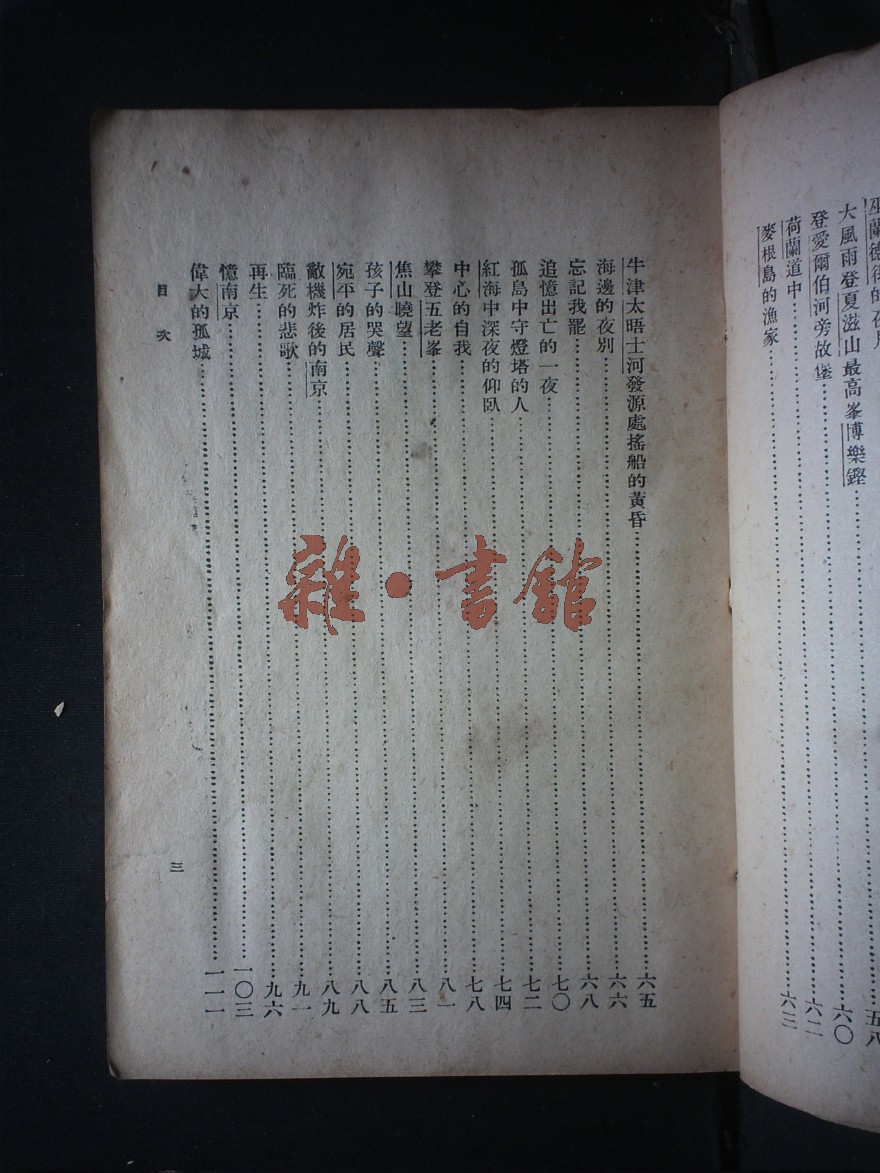 巫蘭德街的夜……五八
大風雨登夏滋山最高峯博樂鏗……六〇
登愛爾伯河旁故堡……六二
荷蘭道中
麥根島的漁家……六三
牛津太晤士河發源處搖船的黃昏……六五
海邊的夜別……六六
忘記我罷……六八
追憶出亡的一夜……七〇
孤島中守燈塔的人……七二
紅海中深夜的仰臥……七四
中心的自我……七八
攀登五老峯……八一
焦山曉望……八三
孩子的哭聲……八五
宛平的居民……八八
敵機炸後的南京……八九
臨死的悲歌……九一
再生……九六
憶南京……一〇三
偉大的孤城……一一一
目次
三
雜·書館